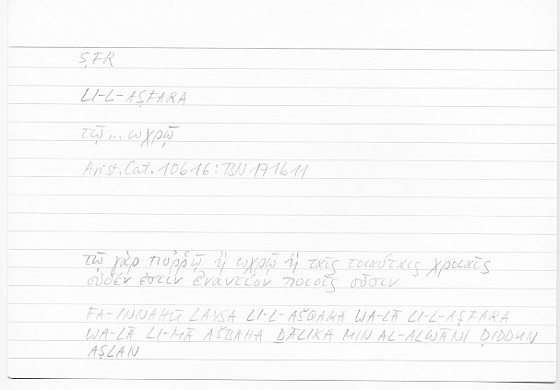 ṢFR
LI-L-AṢFARA
τῷ ... ὠχρῷ
Arist. Cat. 10b16 : BN 171b11
τῷ γὰρ πυῤῥῷ ἢ ὠχρῷ ἢ ταῖς τοιαύταις χροιαῖς
οὐδέν ἐστιν ἐναντίον ποιοῖς οὖσιν
FA-INNAHŪ LAYSA LI-L-AŠQARA WA-LĀ LI-L-AṢFARA
WA-LĀ LI-MĀ AŠBAHA ḎĀLIKA MIN AL-ALWĀNI ḌIDDUN
AṢLAN